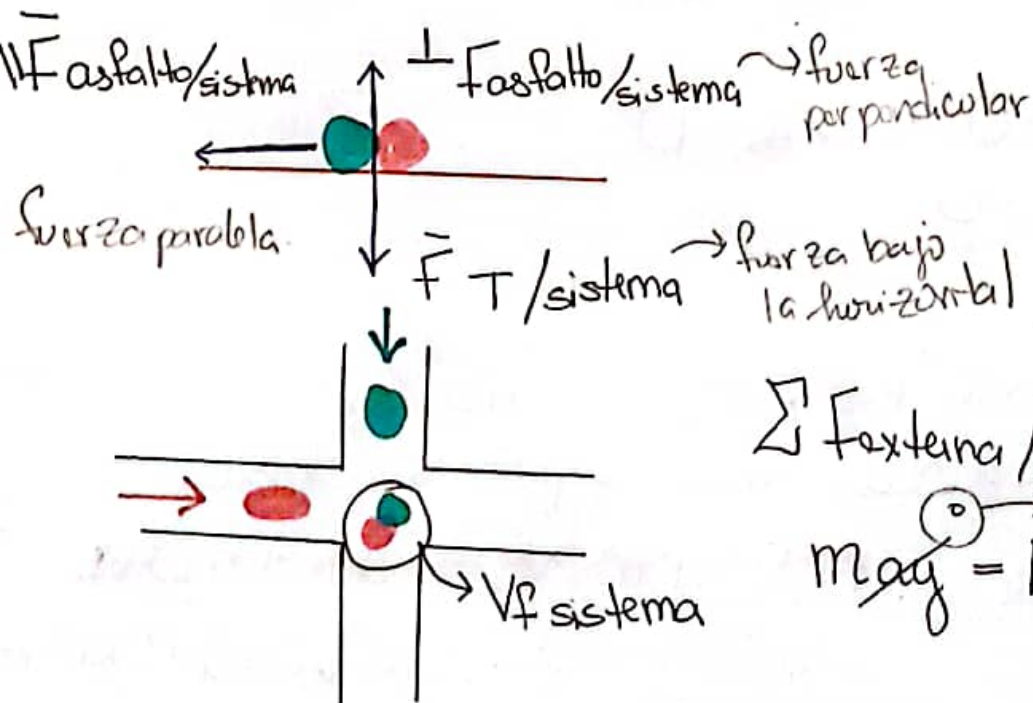 ∥F̄ asfalto/sistema
⊥ Fasfalto/sistema → fuerza
perpendicular
fuerza paralela.
F̄ T/sistema → fuerza bajo
la horizontal
Σ Fexterna/
0
may =
Vf sistema